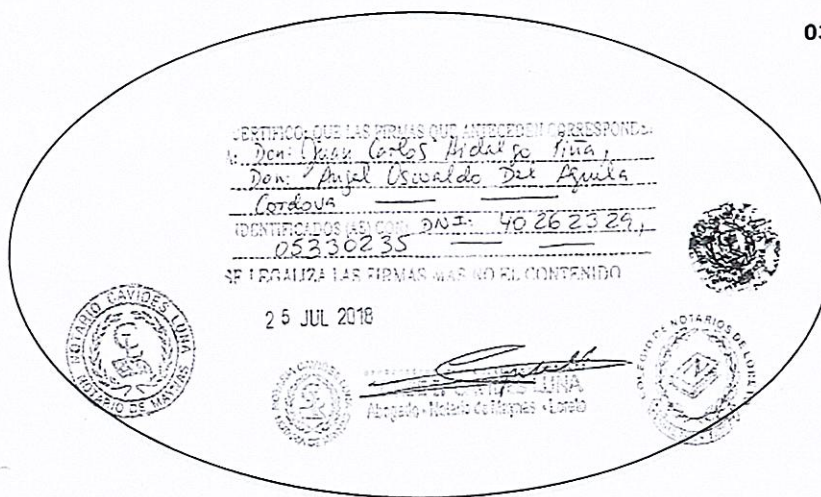 03
CERTIFICO: QUE LAS FIRMAS QUE ANTECEDEN CORRESPONDEN
A: Don: Juan Carlos Hidalgo
Don: Angel Oswaldo Del Aguila
Cordova
IDENTIFICADOS (AS) CON: DNI: 40262329,
05330235
SE LEGALIZA LAS FIRMAS MAS NO EL CONTENIDO
25 JUL 2018
NOTARIO CAVIDES LUNA
NOTARIO DE MAYNAS
CAVIDES LUNA
Abogado - Notario de Maynas - Loreto
COLEGIO DE NOTARIOS DE LORETO